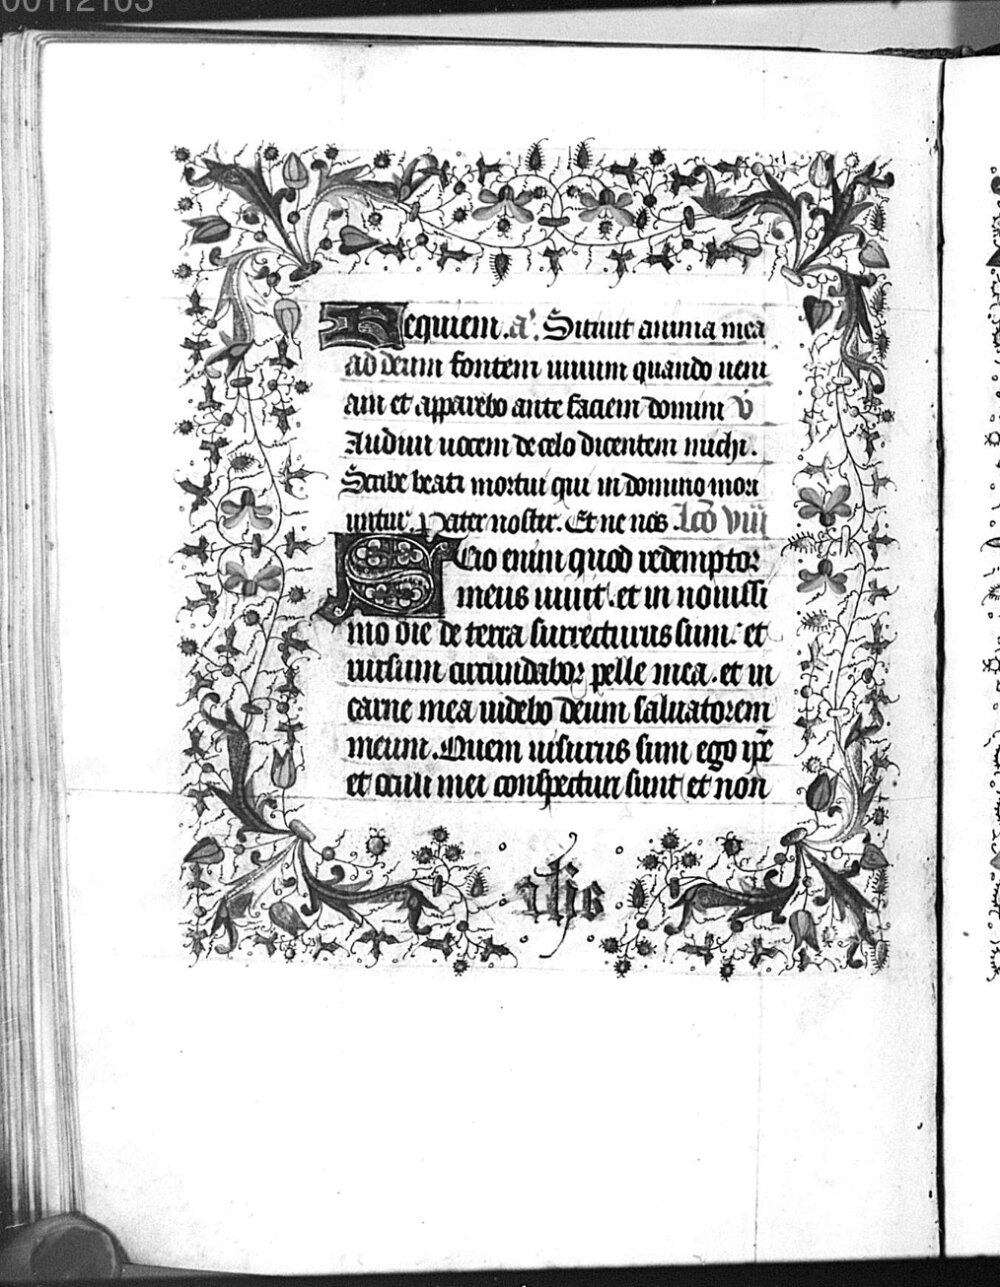 00112103
Requiem. a'. Sitiuit anima mea
ad deum fontem uiuum quando ueni
am et apparebo ante faciem domini v̄
Audiui uocem de celo dicentem michi.
Scribe beati mortui qui in domino mori
untur. Pater noster. Et ne nos Lc̄o viii
Scio enim quod redemptor
meus uiuit. et in nouissi
mo die de terra surrecturus sum: et
rursum circundabor pelle mea. et in
carne mea uidebo deum saluatorem
meum. Quem uisurus sum ego ip̄e
et oculi mei conspecturi sunt et non
alius